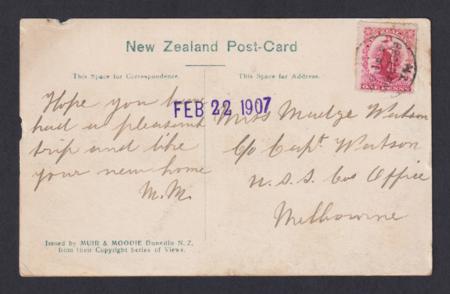 New Zealand Post-Card
This Space for Correspondence.
This Space for Address.
Hope you have
had a pleasant
trip and like
your new home
M.M.
FEB 22 1907
Miss Madge Watson
C/o Capt Watson
N.S.S. Cos Office
Melbourne
ONE PENNY
Issued by MUIR & MOODIE Dunedin N.Z.
from their Copyright Series of Views.